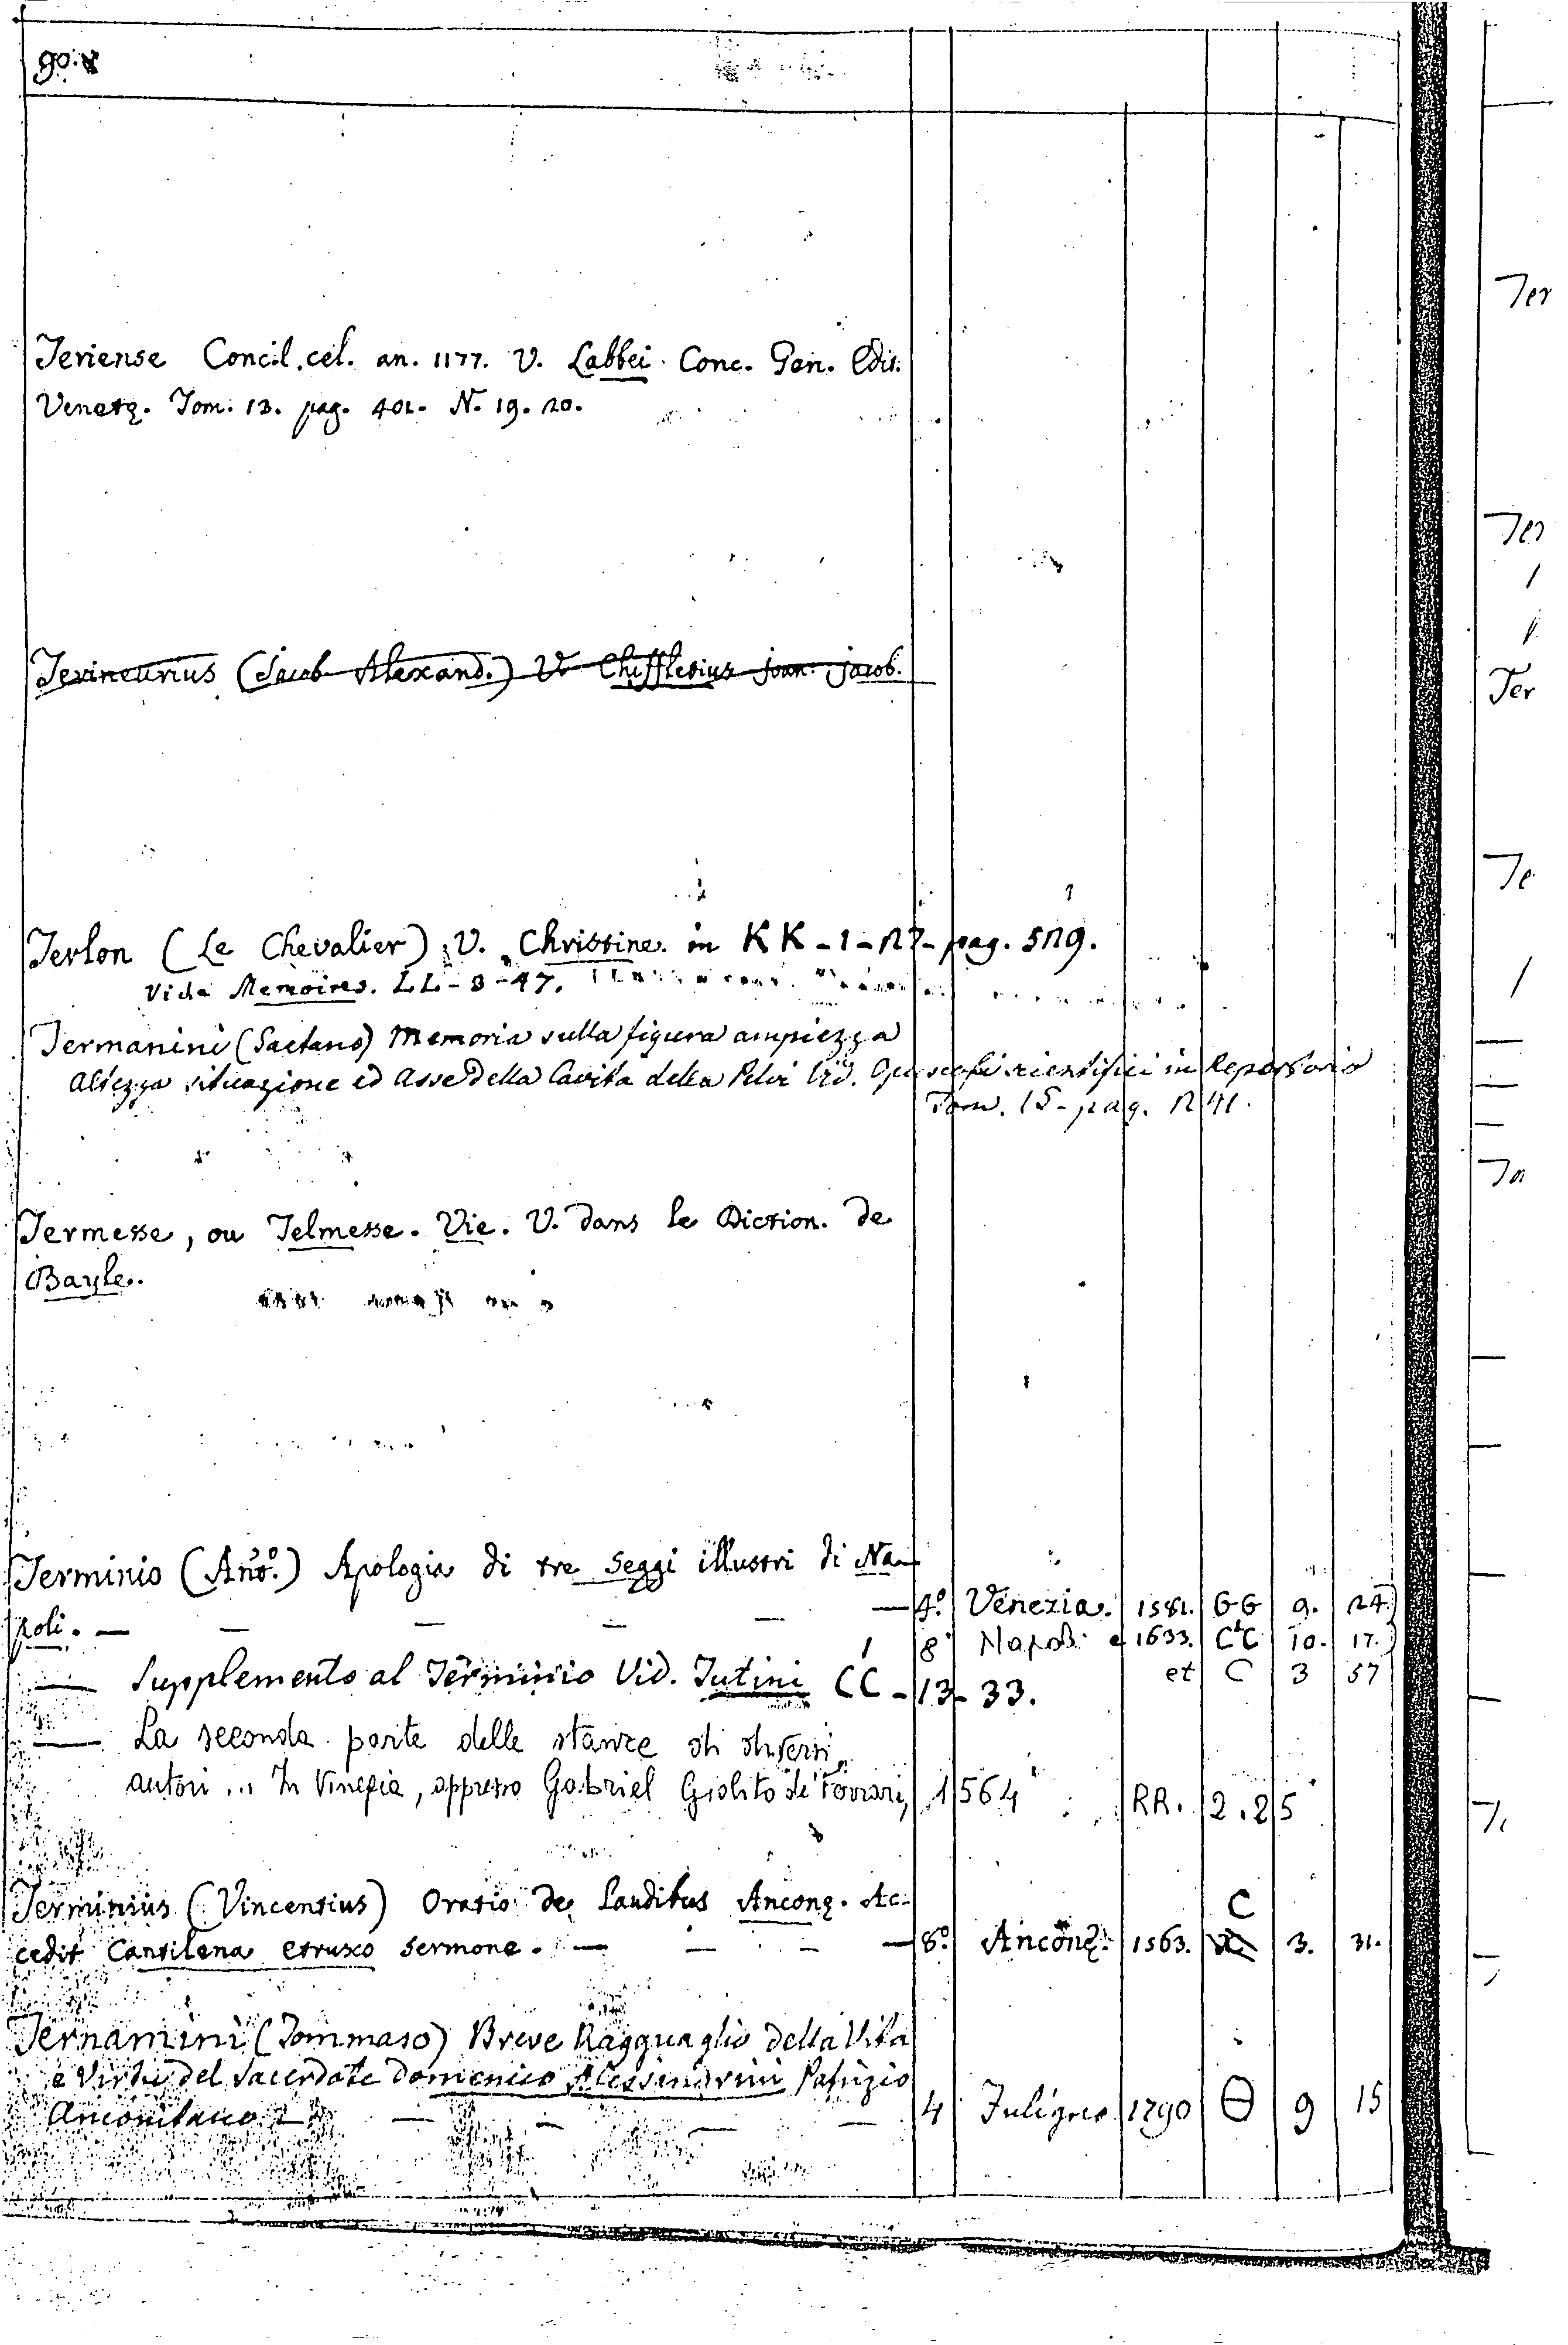 Teriense Concil. cel. an. 1177. V. Labbei Conc. Gen. Edit.
Venetę. Tom. 13. pag. 401. N. 19. 20.
(Jacob Alexand.) V Chiffletius Joan. Jacob.
Terlon (Le Chevalier) V. Christine. in KK-1-27-pag. 529.
Vide Memoires. LL-8-47.
Termanini (Gaetano) Memoria sulla figura ampiezza
altezza situazione ed Asse della Cavità della Pelvi Vid. Opuscoli scientifici in Repertorio
Tom. 15-pag. 241.
Termesse, ou Telmesse. Vie. V. dans le Diction. de
Bayle.
Terminio (Anto.) Apologia di tre Seggi illustri di Na-
poli. — — — — — 4o. Venezia. 1581. GG 9. 24.
8 Napoli 1633. CC 10. 17.
et C 3 57
— Supplemento al Terminio Vid. Tutini CC-13-33.
— La seconda parte delle stanze di diversi
autori ... In Vinegia, appresso Gabriel Giolito de' Ferrari, 1564 RR. 2. 25
Terminius (Vincentius) Oratio de Laudibus Anconę. Ac-
cedit Cantilena etrusco sermone. — — — — 8o. Anconę. 1563. C 3. 31.
Ternamini (Tommaso) Breve Ragguaglio della Vita
e Virtù del Sacerdote Domenico Alessindrini Patrizio
Anconitano — — — — 4 Fuligno 1790 Θ 9 15
Ter
Ter
Ter
Te